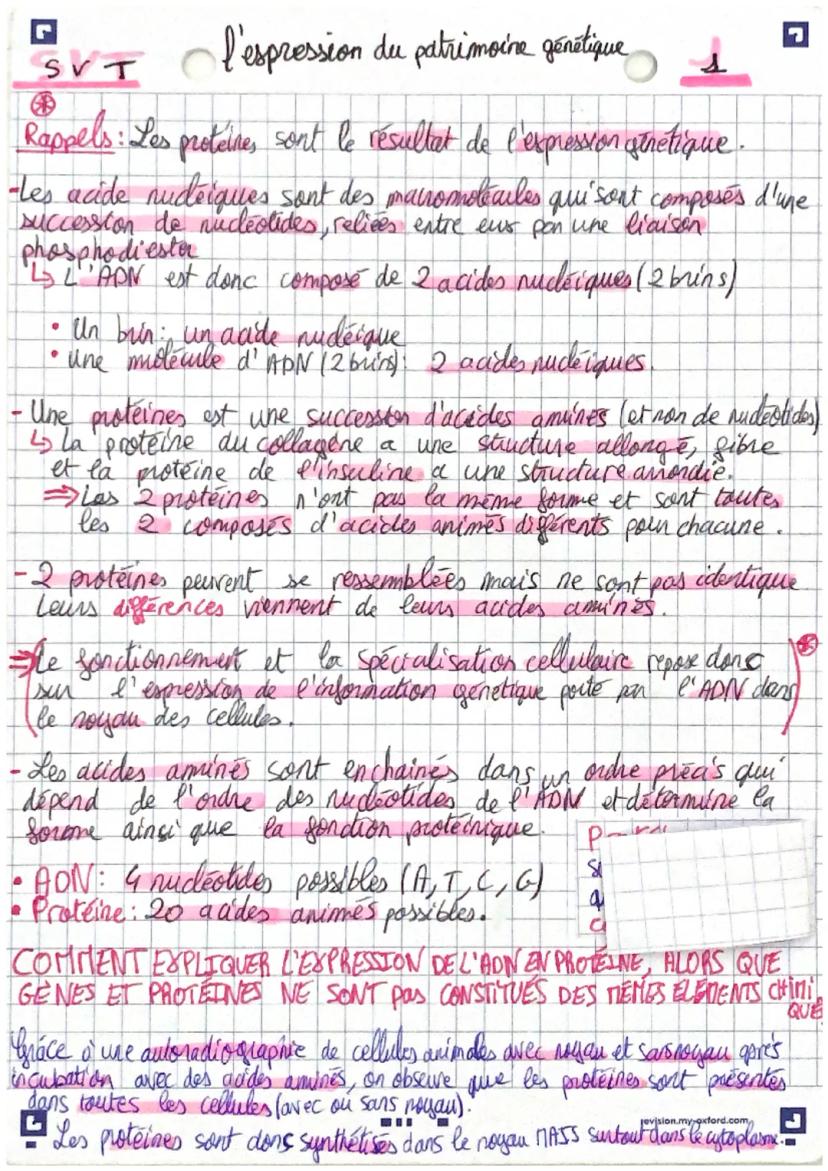 SVT
l'expression du patrimoine génétique
1
Rappels : Les protéines sont le résultat de l'expression génétique.
- Les acide nucléiques sont des macromolécules qui sont composés d'une
succession de nucléotides, reliées entre eux par une liaison
phosphodiester
↳ L'ADN est donc composé de 2 acides nucléiques (2 brins)
• Un brin : un acide nucléique
• Une molécule d'ADN (2 brins) : 2 acides nucléiques.
- Une protéines est une succession d'acides aminés (et non de nucléotides)
↳ La protéine du collagène a une structure allongé, fibre
et la protéine de l'insuline a une structure arrondie.
⇒ Les 2 protéines n'ont pas la même forme et sont toutes
les 2 composés d'acides animés différents pour chacune.
- 2 protéines peuvent se ressemblées mais ne sont pas identique
Leurs différences viennent de leurs acides aminés.
⇒ (Le fonctionnement et la spécialisation cellulaire repose donc
sur l'expression de l'information génétique porté par l'ADN dans
le noyau des cellules.)
- Les acides aminés sont enchainés dans un ordre précis qui
dépend de l'ordre des nucléotides de l'ADN et détermine la
forme ainsi que la fonction protéinique.
• ADN : 4 nucléotides possibles (A, T, C, G)
• Protéine : 20 acides animés possibles.
COMMENT EXPLIQUER L'EXPRESSION DE L'ADN EN PROTÉINE, ALORS QUE
GÈNES ET PROTÉINES NE SONT PAS CONSTITUÉS DES MÊMES ÉLÉMENTS CHIMI
QUE
Grâce à une autoradiographie de cellules animales avec noyau et sans noyau après
incubation avec des acides aminés, on observe que les protéines sont présentes
dans toutes les cellules (avec ou sans noyau).
revision.my-oxford.com
Les protéines sont donc synthétisés dans le noyau MAIS surtout dans le cytoplasme.